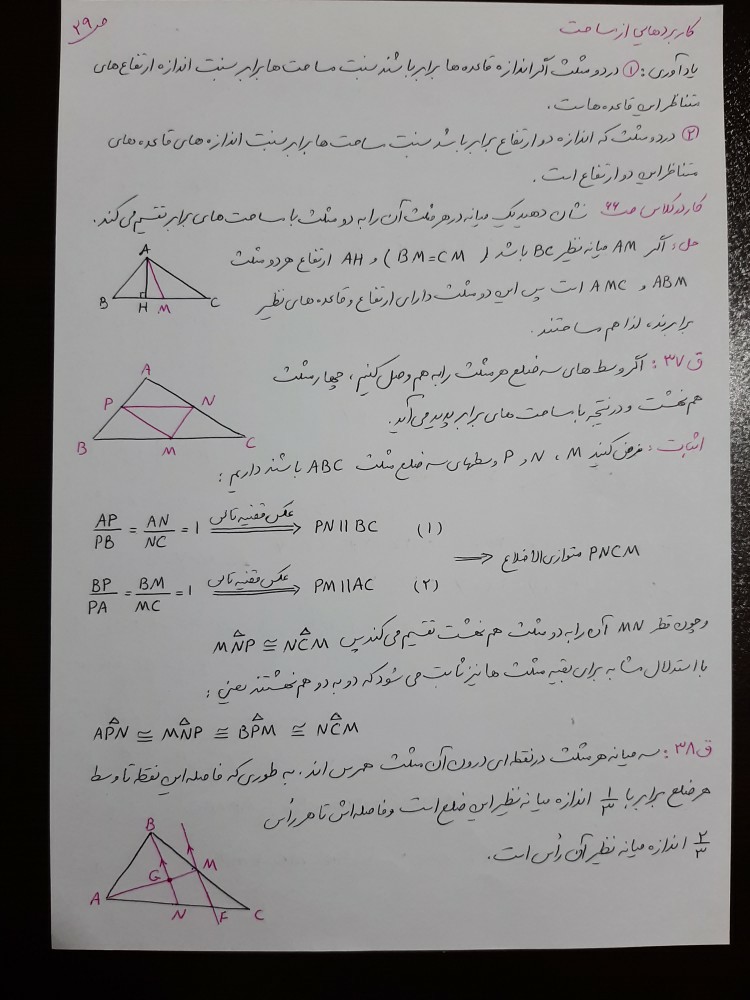 ص ۲۹
کاربردهایی از مساحت
یادآوری: ① در دو مثلث اگر اندازه قاعده ها برابر باشند نسبت مساحت ها برابر نسبت اندازه ارتفاع های
متناظر این قاعده هاست.
② در دو مثلث که اندازه دو ارتفاع برابر باشد نسبت مساحت ها برابر نسبت اندازه های قاعده های
متناظر این دو ارتفاع است.
کار در کلاس ص ۶۶ نشان دهید یک میانه در هر مثلث آن را به دو مثلث با مساحت های برابر تقسیم می کند.
حل: اگر AM میانه نظیر BC باشد (BM=CM) و AH ارتفاع هر دو مثلث
ABM و AMC است پس این دو مثلث دارای ارتفاع و قاعده های نظیر
برابرند، لذا هم مساحتند.
A
B H M C
ق ۳۷: اگر وسط های سه ضلع هر مثلث را به هم وصل کنیم، چهار مثلث
هم نهشت و در نتیجه با مساحت های برابر پدید می آید.
A
P N
B M C
اثبات: فرض کنید M، N و P وسطهای سه ضلع مثلث ABC باشند داریم:
AP/PB = AN/NC = 1 ⟹ عکس قضیه تالس PN || BC (۱)
⟹ PNCM متوازی الاضلاع
BP/PA = BM/MC = 1 ⟹ عکس قضیه تالس PM || AC (۲)
و چون قطر MN آن را به دو مثلث هم نهشت تقسیم می کند پس MN̂P ≅ NĈM
با استدلال مشابه برای بقیه مثلث ها نیز ثابت می شود که دو به دو هم نهشتند یعنی:
AP̂N ≅ MN̂P ≅ BP̂M ≅ NĈM
ق ۳۸: سه میانه هر مثلث در نقطه ای درون آن مثلث همرس اند. به طوری که فاصله این نقطه تا وسط
هر ضلع برابر با ۱/۳ اندازه میانه نظیر این ضلع است و فاصله اش تا هر رأس
۲/۳ اندازه میانه نظیر آن رأس است.
B
M
G
A N F C